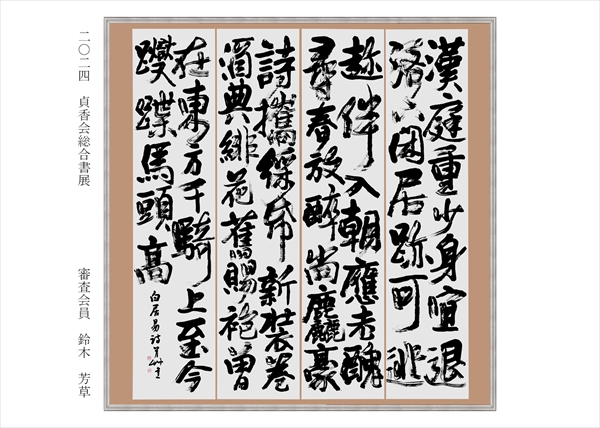 漢庭重少身宜退
洛下閑居跡可逃
趁伴入朝應老醜
尋春放醉尚麤豪
詩攜綵帋新装巻
酒典緋花舊賜袍曽
在東方千騎上至今
躞蹀馬頭高
白居易詩 芳艸
二〇二四 貞香会総合書展
審査会員 鈴木 芳草